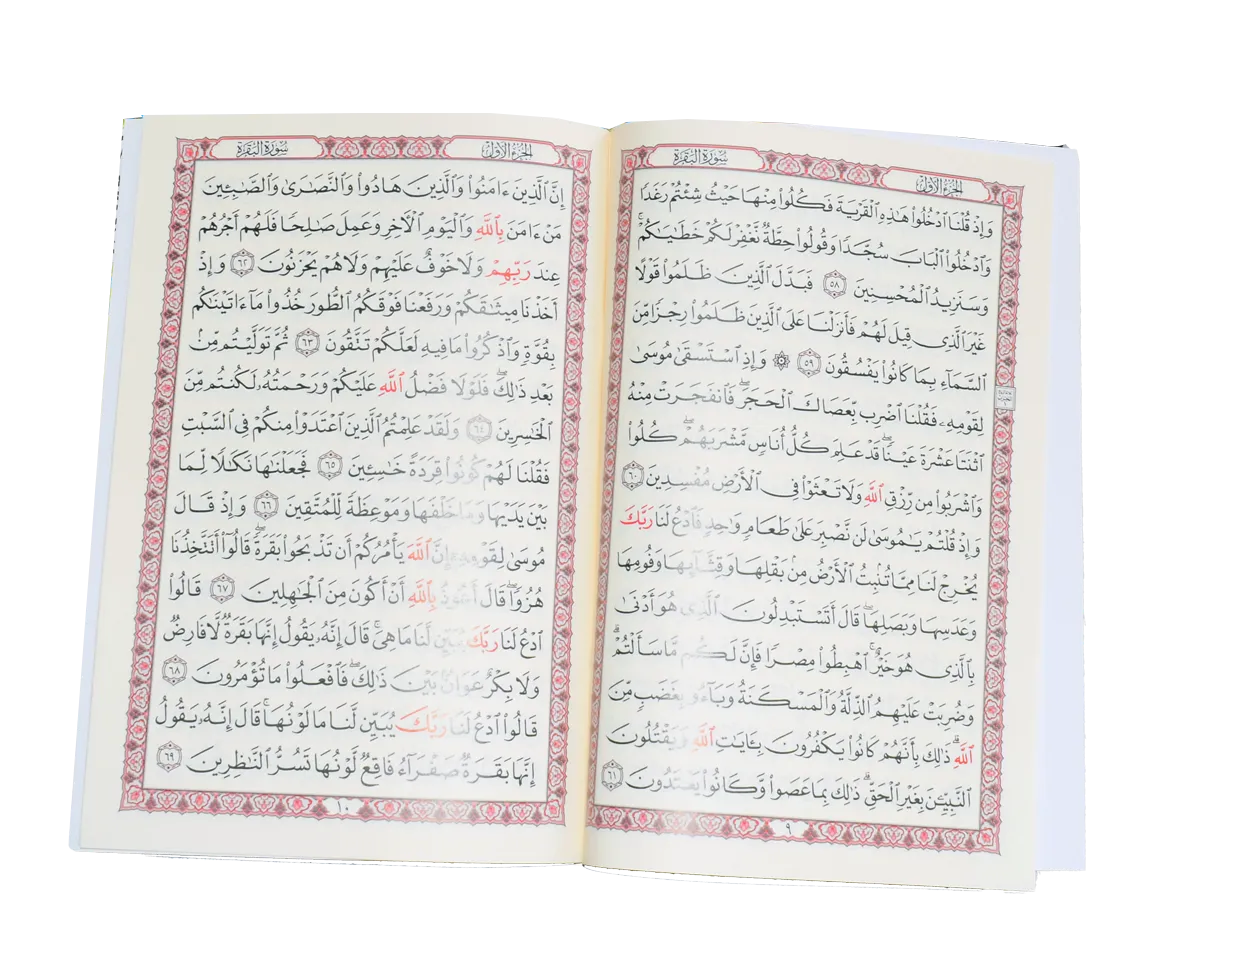 سُورَةُ البَقَرَةِ
الجُزْءُ الأَوَّلُ
وَإِذْ قُلْنَا ٱدْخُلُوا۟ هَٰذِهِ ٱلْقَرْيَةَ فَكُلُوا۟ مِنْهَا حَيْثُ شِئْتُمْ رَغَدًا
وَٱدْخُلُوا۟ ٱلْبَابَ سُجَّدًا وَقُولُوا۟ حِطَّةٌ نَّغْفِرْ لَكُمْ خَطَٰيَٰكُمْ ۚ
وَسَنَزِيدُ ٱلْمُحْسِنِينَ ٥٨ فَبَدَّلَ ٱلَّذِينَ ظَلَمُوا۟ قَوْلًا
غَيْرَ ٱلَّذِى قِيلَ لَهُمْ فَأَنزَلْنَا عَلَى ٱلَّذِينَ ظَلَمُوا۟ رِجْزًا مِّنَ
ٱلسَّمَآءِ بِمَا كَانُوا۟ يَفْسُقُونَ ٥٩ ۞ وَإِذِ ٱسْتَسْقَىٰ مُوسَىٰ
لِقَوْمِهِۦ فَقُلْنَا ٱضْرِب بِّعَصَاكَ ٱلْحَجَرَ ۖ فَٱنفَجَرَتْ مِنْهُ
ٱثْنَتَا عَشْرَةَ عَيْنًا ۖ قَدْ عَلِمَ كُلُّ أُنَاسٍ مَّشْرَبَهُمْ ۖ كُلُوا۟
وَٱشْرَبُوا۟ مِن رِّزْقِ ٱللَّهِ وَلَا تَعْثَوْا۟ فِى ٱلْأَرْضِ مُفْسِدِينَ ٦٠
وَإِذْ قُلْتُمْ يَٰمُوسَىٰ لَن نَّصْبِرَ عَلَىٰ طَعَامٍ وَٰحِدٍ فَٱدْعُ لَنَا رَبَّكَ
يُخْرِجْ لَنَا مِمَّا تُنۢبِتُ ٱلْأَرْضُ مِنۢ بَقْلِهَا وَقِثَّآئِهَا وَفُومِهَا
وَعَدَسِهَا وَبَصَلِهَا ۖ قَالَ أَتَسْتَبْدِلُونَ ٱلَّذِى هُوَ أَدْنَىٰ
بِٱلَّذِى هُوَ خَيْرٌ ۚ ٱهْبِطُوا۟ مِصْرًا فَإِنَّ لَكُم مَّا سَأَلْتُمْ ۗ
وَضُرِبَتْ عَلَيْهِمُ ٱلذِّلَّةُ وَٱلْمَسْكَنَةُ وَبَآءُو بِغَضَبٍ مِّنَ
ٱللَّهِ ۗ ذَٰلِكَ بِأَنَّهُمْ كَانُوا۟ يَكْفُرُونَ بِـَٔايَٰتِ ٱللَّهِ وَيَقْتُلُونَ
ٱلنَّبِيِّـۧنَ بِغَيْرِ ٱلْحَقِّ ۗ ذَٰلِكَ بِمَا عَصَوا۟ وَّكَانُوا۟ يَعْتَدُونَ ٦١
٩
الجُزْءُ الأَوَّلُ
سُورَةُ البَقَرَةِ
إِنَّ ٱلَّذِينَ ءَامَنُوا۟ وَٱلَّذِينَ هَادُوا۟ وَٱلنَّصَٰرَىٰ وَٱلصَّٰبِـِٔينَ
مَنْ ءَامَنَ بِٱللَّهِ وَٱلْيَوْمِ ٱلْءَاخِرِ وَعَمِلَ صَٰلِحًا فَلَهُمْ أَجْرُهُمْ
عِندَ رَبِّهِمْ وَلَا خَوْفٌ عَلَيْهِمْ وَلَا هُمْ يَحْزَنُونَ ٦٢ وَإِذْ
أَخَذْنَا مِيثَٰقَكُمْ وَرَفَعْنَا فَوْقَكُمُ ٱلطُّورَ خُذُوا۟ مَآ ءَاتَيْنَٰكُم
بِقُوَّةٍ وَٱذْكُرُوا۟ مَا فِيهِ لَعَلَّكُمْ تَتَّقُونَ ٦٣ ثُمَّ تَوَلَّيْتُم مِّنۢ
بَعْدِ ذَٰلِكَ ۖ فَلَوْلَا فَضْلُ ٱللَّهِ عَلَيْكُمْ وَرَحْمَتُهُۥ لَكُنتُم مِّنَ
ٱلْخَٰسِرِينَ ٦٤ وَلَقَدْ عَلِمْتُمُ ٱلَّذِينَ ٱعْتَدَوْا۟ مِنكُمْ فِى ٱلسَّبْتِ
فَقُلْنَا لَهُمْ كُونُوا۟ قِرَدَةً خَٰسِـِٔينَ ٦٥ فَجَعَلْنَٰهَا نَكَٰلًا لِّمَا
بَيْنَ يَدَيْهَا وَمَا خَلْفَهَا وَمَوْعِظَةً لِّلْمُتَّقِينَ ٦٦ وَإِذْ قَالَ
مُوسَىٰ لِقَوْمِهِۦٓ إِنَّ ٱللَّهَ يَأْمُرُكُمْ أَن تَذْبَحُوا۟ بَقَرَةً ۖ قَالُوٓا۟ أَتَتَّخِذُنَا
هُزُوًا ۖ قَالَ أَعُوذُ بِٱللَّهِ أَنْ أَكُونَ مِنَ ٱلْجَٰهِلِينَ ٦٧ قَالُوا۟
ٱدْعُ لَنَا رَبَّكَ يُبَيِّن لَّنَا مَا هِىَ ۚ قَالَ إِنَّهُۥ يَقُولُ إِنَّهَا بَقَرَةٌ لَّا فَارِضٌ
وَلَا بِكْرٌ عَوَانٌۢ بَيْنَ ذَٰلِكَ ۖ فَٱفْعَلُوا۟ مَا تُؤْمَرُونَ ٦٨
قَالُوا۟ ٱدْعُ لَنَا رَبَّكَ يُبَيِّن لَّنَا مَا لَوْنُهَا ۚ قَالَ إِنَّهُۥ يَقُولُ
إِنَّهَا بَقَرَةٌ صَفْرَآءُ فَاقِعٌ لَّوْنُهَا تَسُرُّ ٱلنَّٰظِرِينَ ٦٩
١٠